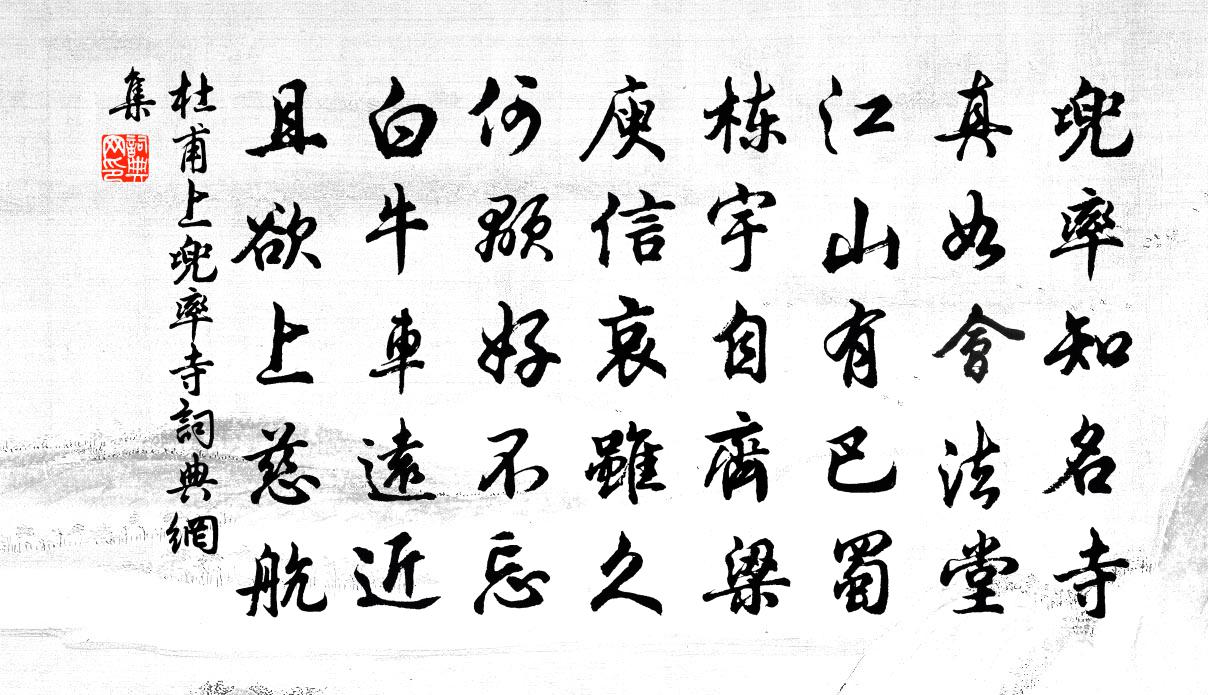 兜率知名寺
真如會法堂
江山有巴蜀
棟宇自齊梁
庾信哀雖久
何顒好不忘
白牛車遠近
且欲上慈航
杜甫上兜率寺詞典網
集
詞典
网印